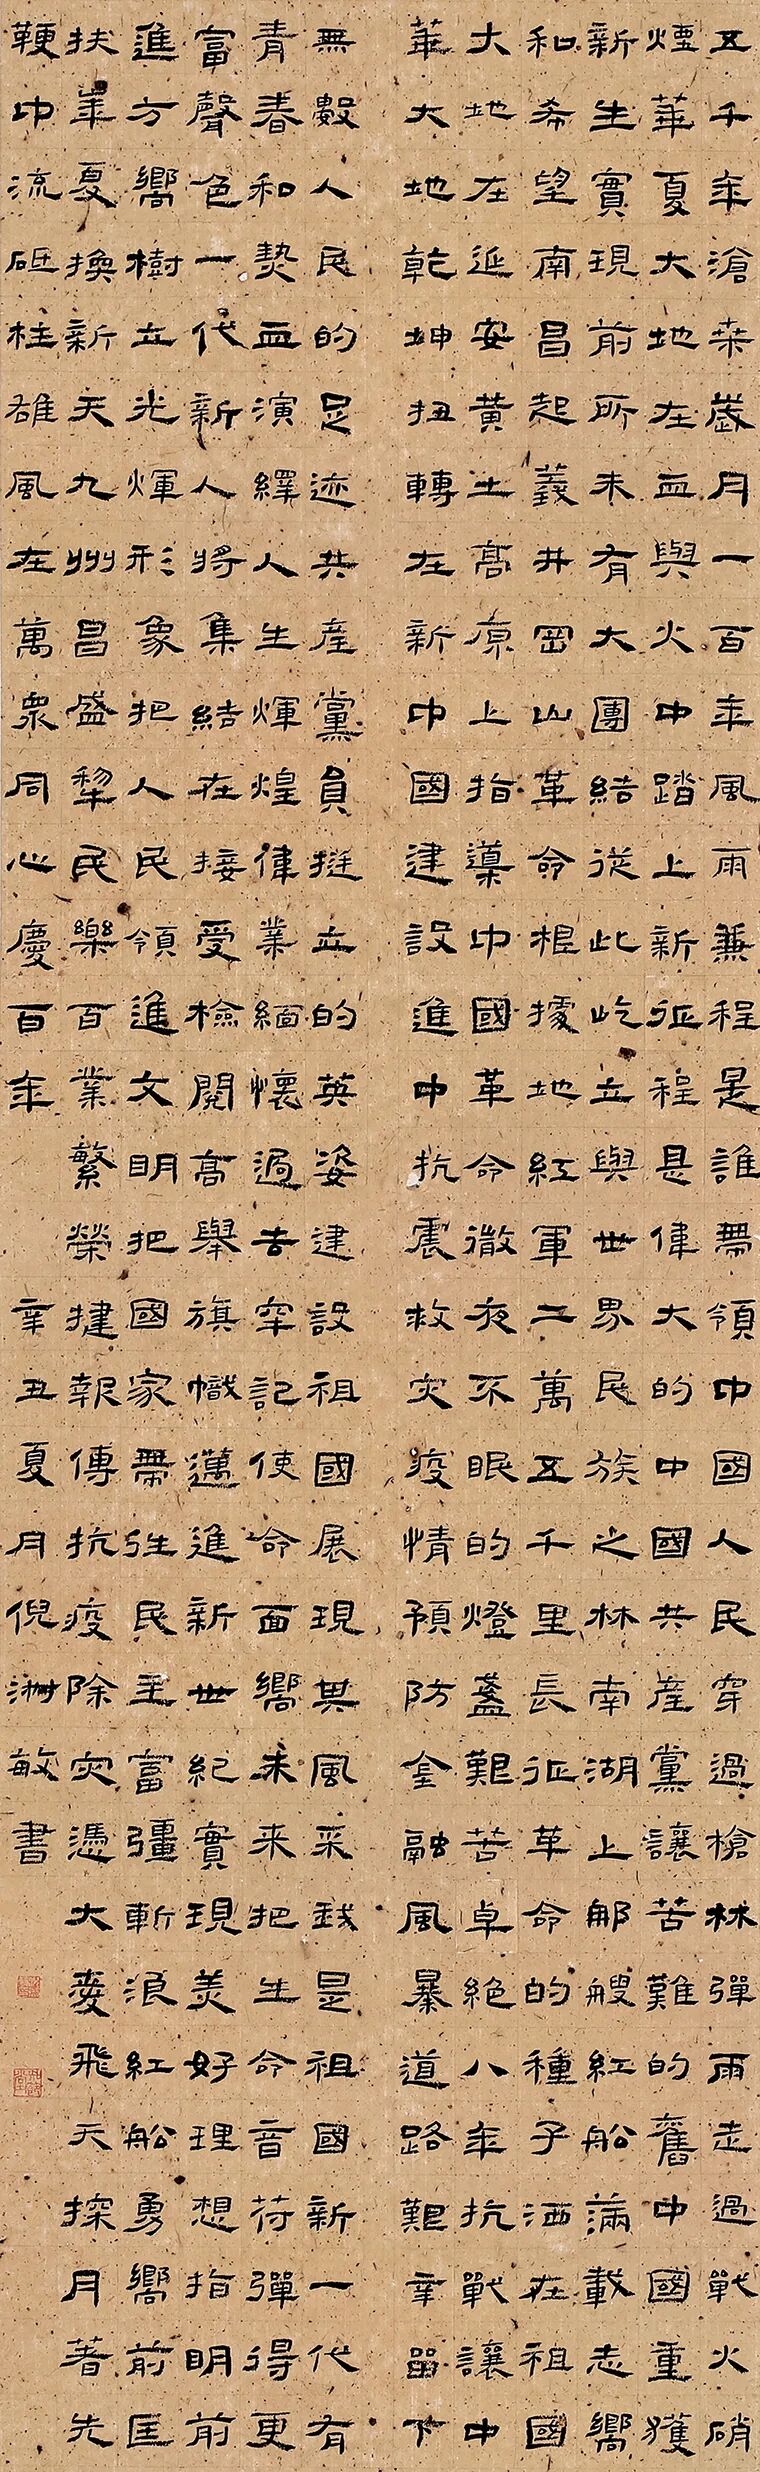 五千年滄桑歲月一百年風雨兼程是誰帶領中國人民穿過槍林彈雨走過戰火硝
煙華夏大地在血與火中踏上新征程是偉大的中國共產黨讓苦難的舊中國重獲
新生實現前所未有大團結從此屹立與世界民族之林南湖上那艘紅船滿載志嚮
和希望南昌起義井岡山革命根據地紅軍二萬五千里長征革命的種子洒在祖國
大地在延安黃土高原上指導中國革命徹夜不眠的燈盞艱苦卓絕八年抗戰讓中
華大地乾坤扭轉在新中國建設進中抗震救灾疫情預防金融風暴道路艱辛留下
無數人民的足迹共產黨員挺立的英姿建設祖國展現其風采我是祖國新一代有
青春和熱血演繹人生輝煌偉業緬懷過去牢記使命面嚮未来把生命音符彈得更
富聲色一代新人將集結在接受檢閱高舉旗幟邁進新世紀實現美好理想指明前
進方嚮樹立光輝形象把人民領進文明把國家帶往民主富彊斬浪紅船勇嚮前匡
扶華夏換新天九州昌盛犁民樂百業繁榮捷報傳抗疫除灾憑大愛飛天探月著先
鞭中流砥柱雄風在萬衆同心慶百年 辛丑夏月倪洲敏書